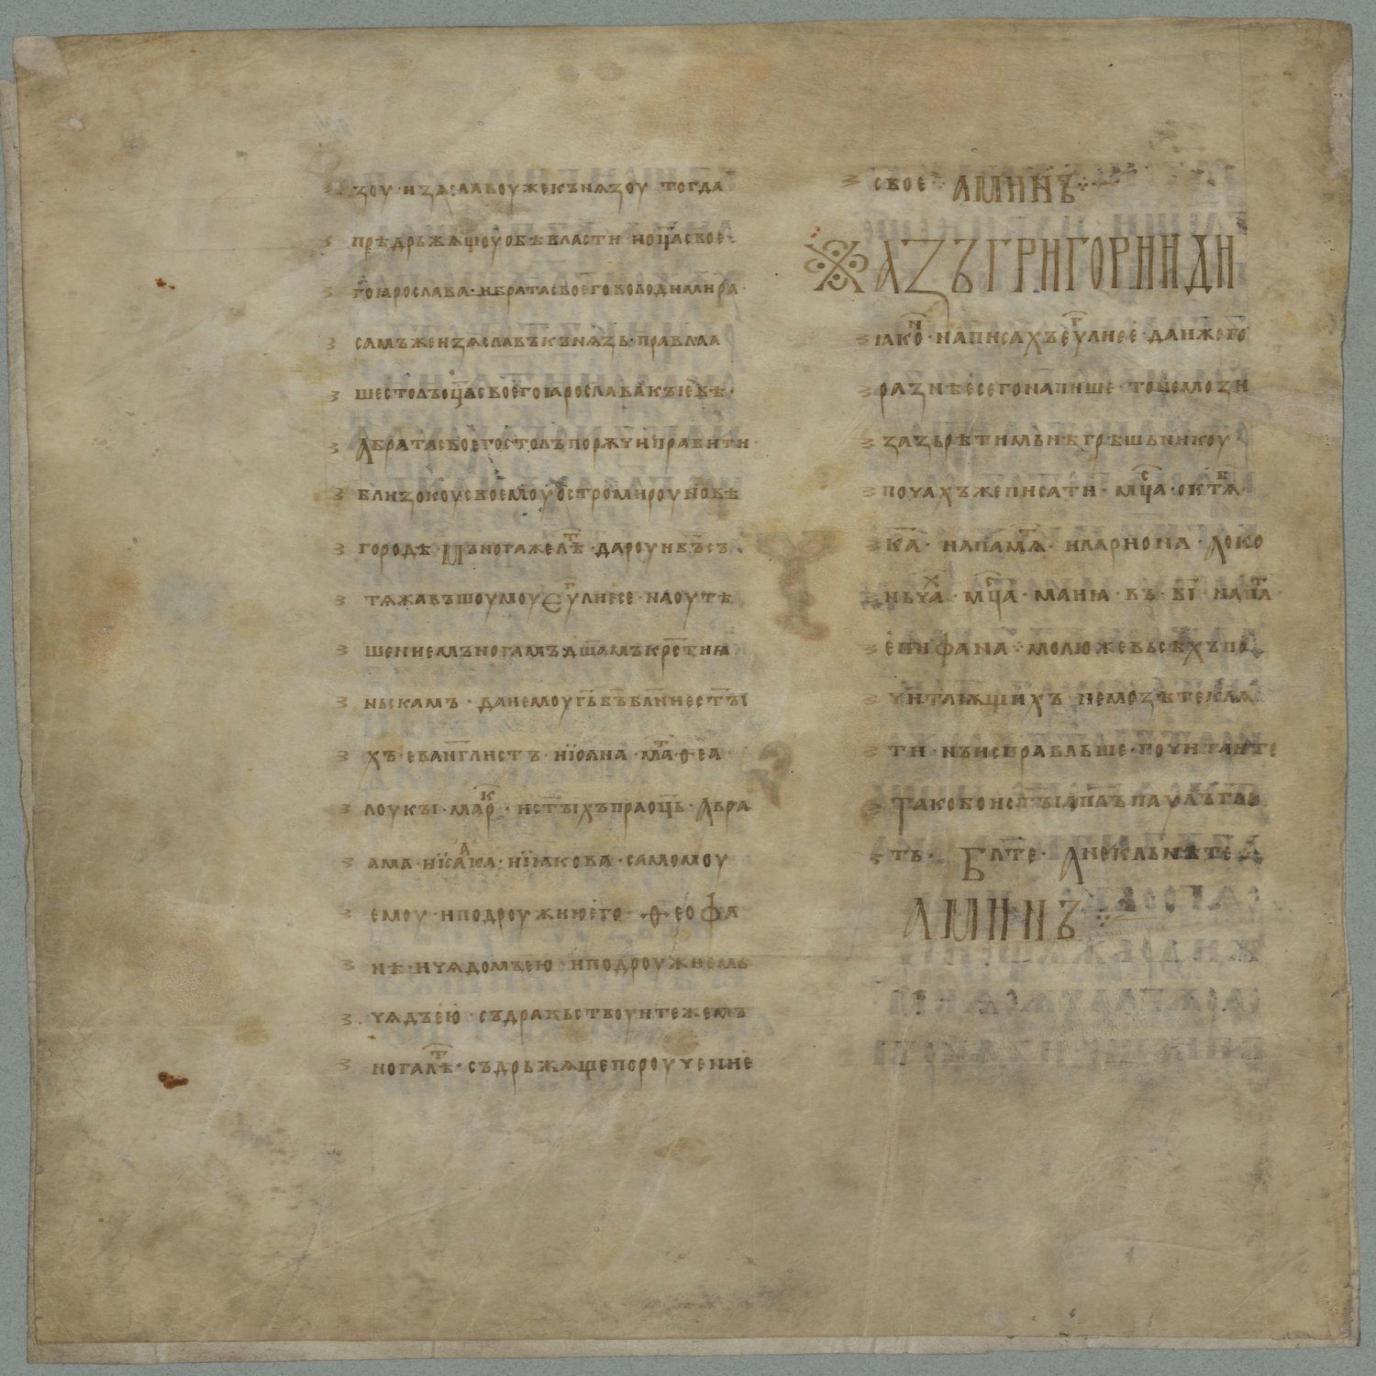 ꙁоу · иꙁѧславоу же кънѧꙁоу тогда
прѣдрьжѧщоу обѣ власти и оц҃а свое
го ꙗрослава · и брата своего володимира ·
самъ же иꙁѧславъ кънѧꙁь · правлꙗа
ше столъ оц҃а своего ꙗрослава кꙑѥвѣ ·
А брата своего столъ порѫчи правити ·
близокоу своемоу остромироу новѣ
городѣ · Мънога же лѣⷮ · дароуи б҃ъ съ
тѧжавъшоумоу Еуⷢ҇лиѥ се · на оутѣ
шение мъногамъ дш҃амъ крьст҃иꙗ
ньскамъ · даи емоу г҃ь б҃ъ блг҃ние ст҃ꙑ
хъ · еванг҃листъ · и иоана · маⷮ · ѳеа
лоукꙑ · марⷦ · и ст҃ꙑхъ праоц҃ь · Авра
ама · и исаⷶка · и иꙗкова · самомоу
емоу · и подроужию его · ѳеофа
нѣ · и чѧдомъ ею · и подроужиемь
чѧдъ ею · съдравьствоуите же мъ
ногалѣⷮ · съдрьжѧще пороучение
свое ⁘ АМИНЪ ⁘
АꙀЪ ГРИГОРИИ ДИ
ꙗкоⷩ · написахъ еуⷢ҇лие е · да иже го
раꙁнѣе сего напише · то не моꙁи
ꙁаꙁьрѣти мьнѣ грѣшьникоу ·
почахъ же писати · мцⷭ҇а · октѧⷡ ·
к҃а · на памѧⷮ · илариона · А око
ньчаⷯ · мцⷭ҇а · маиꙗ · въ · в҃і · на паⷨ ·
епифана ⁘ молю же вьсѣхъ по
читаѭщихъ не моꙁѣте клѧ
ти · нъ исправльше · почитаите
Тако бо и ст҃ꙑ ап҃лъ паулъ г҃ле
ть · Блⷭ҇те · А не кльнѣте ⁘
АМИНЪ ⁘